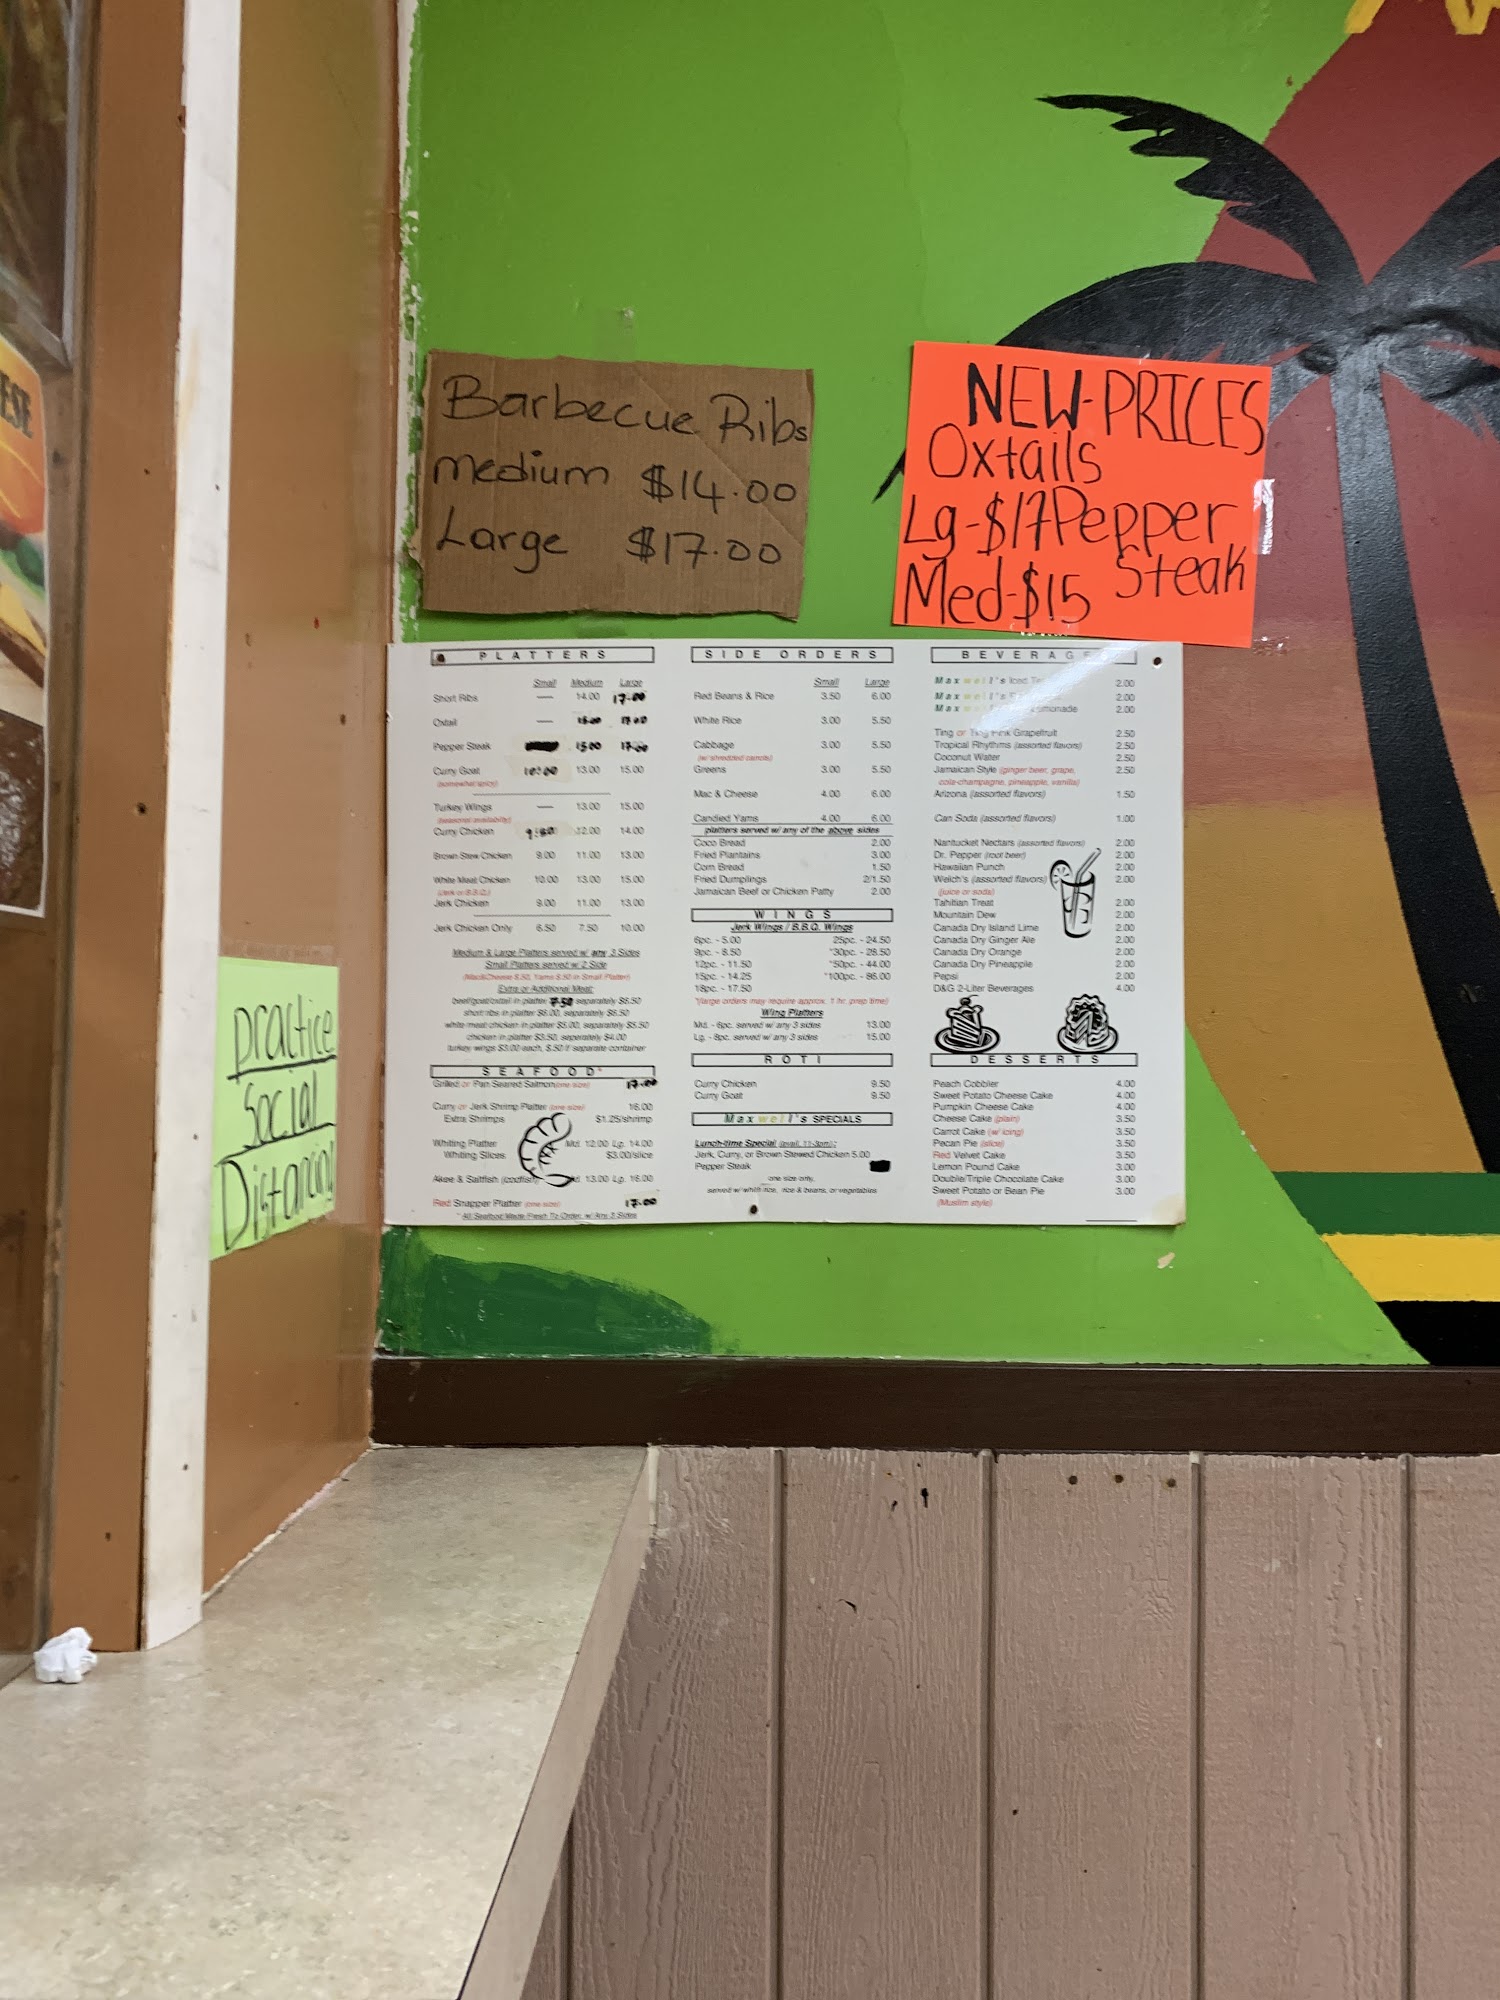 ESE
Barbecue Ribs
medium $14.00
Large $17.00
NEW-PRICES
Oxtails
Lg-$17 Pepper
Med-$15 Steak
practice
Social
Distancing
PLATTERS
Small Medium Large
Short Ribs — 14.00 17.00
Oxtail — 15.00 17.00
Pepper Steak 15.00 17.00
Curry Goat 10.00 13.00 15.00
(somewhat spicy)
Turkey Wings — 13.00 15.00
(seasonal availability)
Curry Chicken 9.50 12.00 14.00
Brown Stew Chicken 9.00 11.00 13.00
White Meat Chicken 10.00 13.00 15.00
(Jerk or B.B.Q.)
Jerk Chicken 9.00 11.00 13.00
Jerk Chicken Only 6.50 7.50 10.00
Medium & Large Platters served w/ any 3 Sides
Small Platters served w/ 2 Side
(Mac&Cheese $.50, Yams $.50 in Small Platter)
Extra or Additional Meat:
beef/goat/oxtail in platter 7.50 separately $8.50
short ribs in platter $6.00, separately $6.50
white meat chicken in platter $5.00, separately $5.50
chicken in platter $3.50, seperately $4.00
turkey wings $3.00 each, $.50 if separate container
SEAFOOD*
Grilled or Pan Seared Salmon (one size) 17.00
Curry or Jerk Shrimp Platter (one size) 16.00
Extra Shrimps $1.25/shrimp
Whiting Platter Md. 12.00 Lg. 14.00
Whiting Slices $3.00/slice
Akee & Saltfish (codfish) 13.00 Lg. 16.00
Red Snapper Platter (one size) 17.00
* All Seafood Made Fresh To Order, w/ Any 3 Sides
SIDE ORDERS
Small Large
Red Beans & Rice 3.50 6.00
White Rice 3.00 5.50
Cabbage 3.00 5.50
(w/ shredded carrots)
Greens 3.00 5.50
Mac & Cheese 4.00 6.00
Candied Yams 4.00 6.00
platters served w/ any of the above sides
Coco Bread 2.00
Fried Plantains 3.00
Corn Bread 1.50
Fried Dumplings 2/1.50
Jamaican Beef or Chicken Patty 2.00
WINGS
Jerk Wings / B.B.Q. Wings
6pc. - 5.00 25pc. - 24.50
9pc. - 8.50 *30pc. - 28.50
12pc. - 11.50 *50pc. - 44.00
15pc. - 14.25 *100pc. - 86.00
18pc. - 17.50
*(large orders may require approx. 1 hr. prep time)
Wing Platters
Md. - 6pc. served w/ any 3 sides 13.00
Lg. - 8pc. served w/ any 3 sides 15.00
ROTI
Curry Chicken 9.50
Curry Goat 9.50
Maxwell's SPECIALS
Lunch-time Special (avail. 11-3pm):
Jerk, Curry, or Brown Stewed Chicken 5.00
Pepper Steak
one size only,
served w/ white rice, rice & beans, or vegetables
BEVERAGES
Maxwell's Iced 2.00
Maxwell's 2.00
Maxwell's Lemonade 2.00
Ting or Ting Pink Grapefruit 2.50
Tropical Rhythms (assorted flavors) 2.50
Coconut Water 2.50
Jamaican Style (ginger beer, grape, 2.50
cola-champagne, pineapple, vanilla)
Arizona (assorted flavors) 1.50
Can Soda (assorted flavors) 1.00
Nantucket Nectars (assorted flavors) 2.00
Dr. Pepper (root beer) 2.00
Hawaiian Punch 2.00
Welch's (assorted flavors) 2.00
(juice or soda)
Tahitian Treat 2.00
Mountain Dew 2.00
Canada Dry Island Lime 2.00
Canada Dry Ginger Ale 2.00
Canada Dry Orange 2.00
Canada Dry Pineapple 2.00
Pepsi 2.00
D&G 2-Liter Beverages 4.00
DESSERTS
Peach Cobbler 4.00
Sweet Potato Cheese Cake 4.00
Pumpkin Cheese Cake 4.00
Cheese Cake (plain) 3.50
Carrot Cake (w/ icing) 3.50
Pecan Pie (slice) 3.50
Red Velvet Cake 3.50
Lemon Pound Cake 3.00
Double/Triple Chocolate Cake 3.00
Sweet Potato or Bean Pie 3.00
(Muslim style)